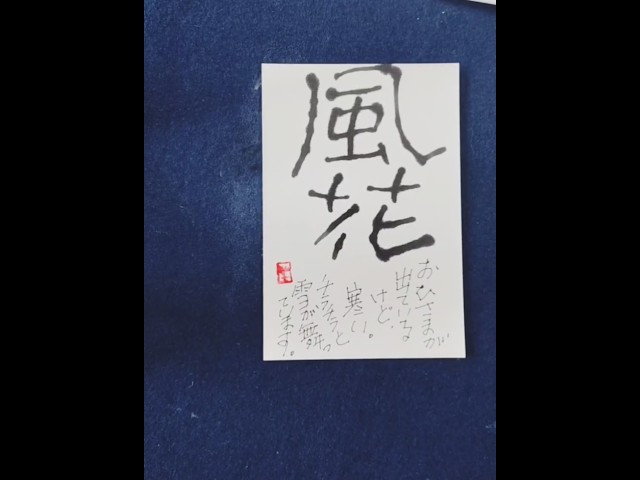 風花
おひさまが
出ている
けど、
寒い。
チラチラと
雪が舞っ
ています。